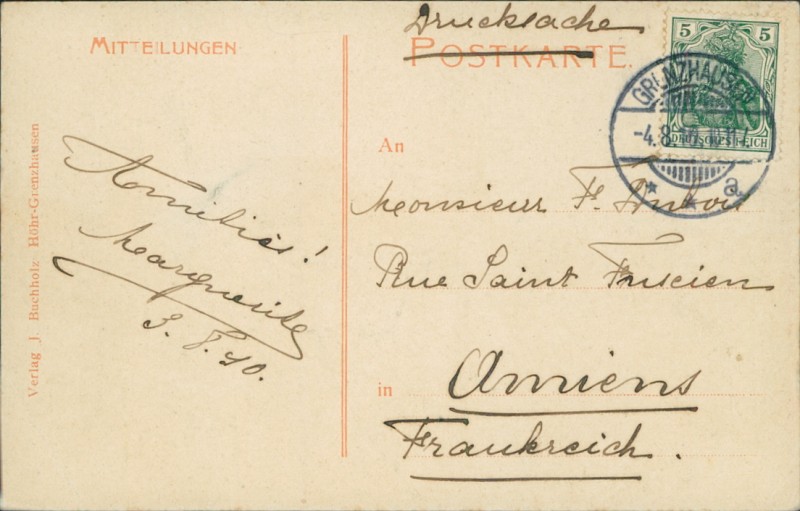 Drucksache
MITTEILUNGEN
POSTKARTE.
5 5
DEUTSCHES REICH
GRENZHAUSEN
-4.8.10. 10-11
* * a
Amitiés!
Marguerite
3.8.10.
An
Monsieur F. Dubois
Rue Saint Fuscien
in Amiens
Frankreich.
Verlag J. Buchholz Höhr-Grenzhausen